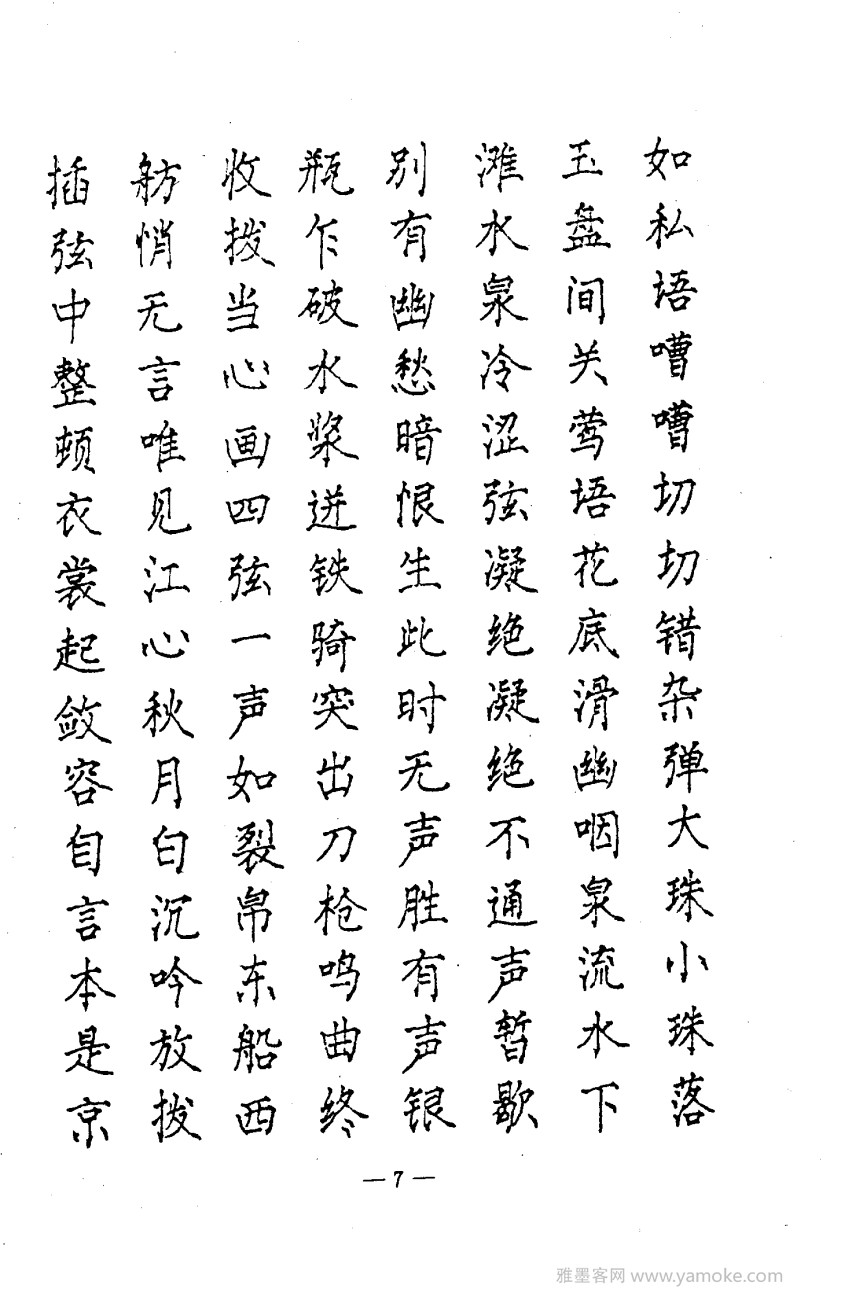 如私语嘈嘈切切错杂弹大珠小珠落
玉盘间关莺语花底滑幽咽泉流水下
滩水泉冷涩弦凝绝凝绝不通声暂歇
别有幽愁暗恨生此时无声胜有声银
瓶乍破水浆迸铁骑突出刀枪鸣曲终
收拨当心画四弦一声如裂帛东船西
舫悄无言唯见江心秋月白沉吟放拨
插弦中整顿衣裳起敛容自言本是京
— 7 —
雅墨客网 www.yamoke.com